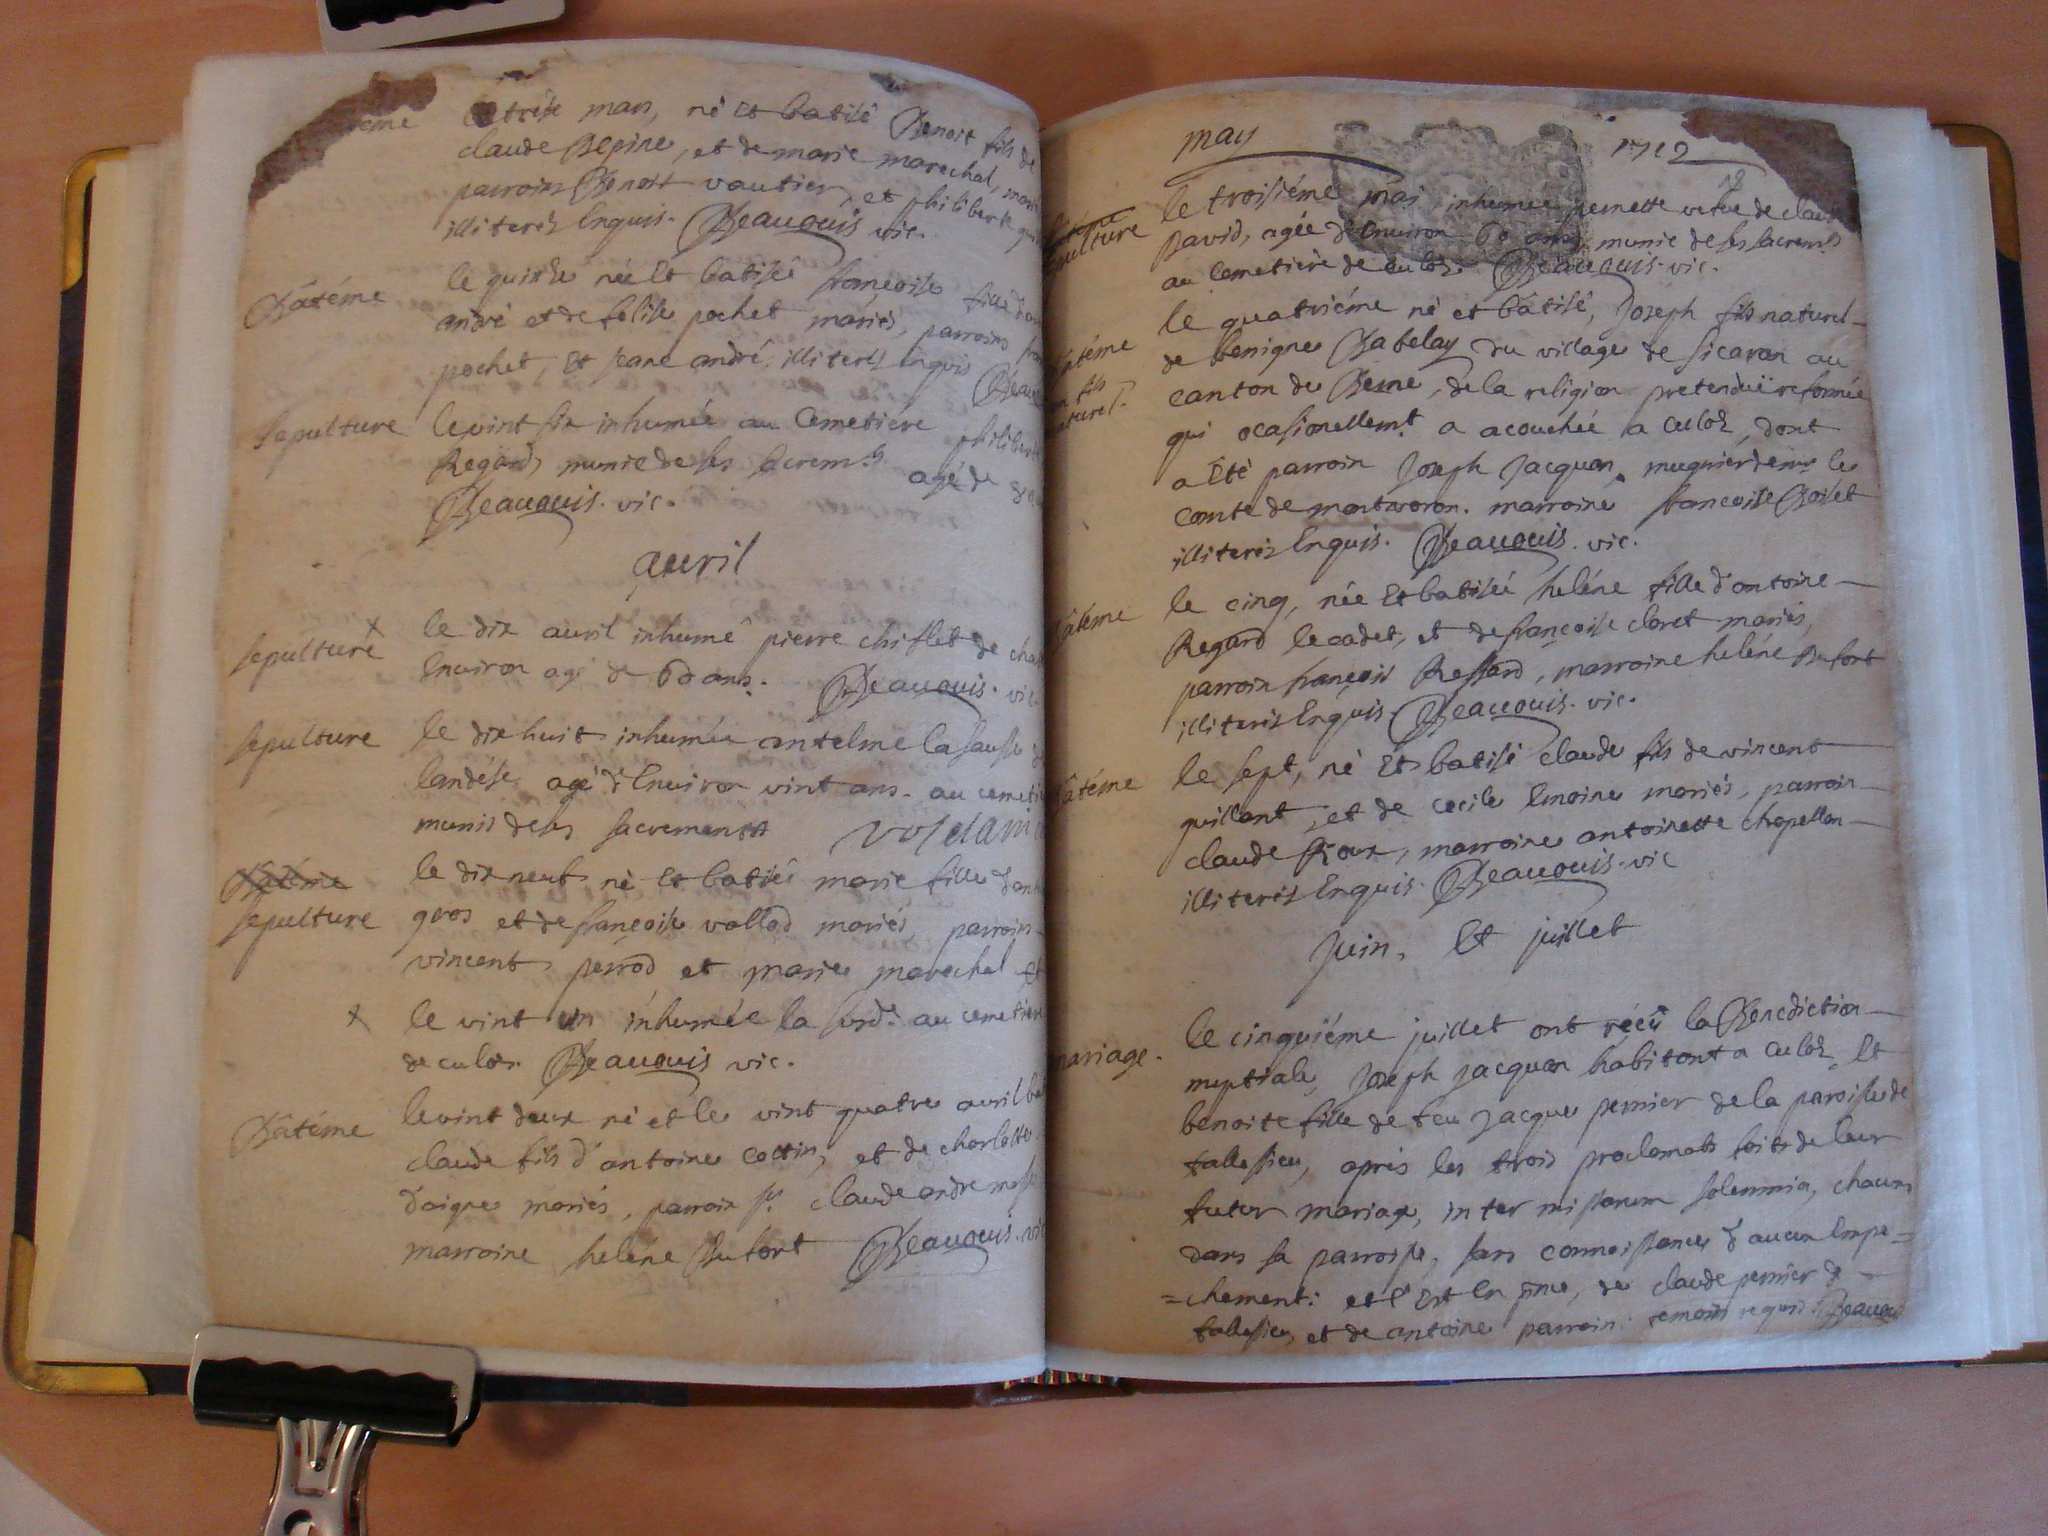 le treise mars, né Et batisé Benoit fils de
claude Bepine, et de marie marechal, mariés
parroins Benoit vautier, et philiberte
illiterés Enquis. Beauouis vic.
Bâtéme
le quinse née Et batisée françoise fille d'
andré et de felise pochet mariés, parroins
pochet, Et jeane andré illiterés Enquis Beauouis
sepulture
le vint six inhumée au Cemetiére philiberte
Regard, munie de ses sacrem.ts agé de
Beauouis. vic.
auril
sepulture
le dix auril inhumé pierre chiflet de
Environ agé de 60 ans. Beauouis. vic.
sepulture
le dix huit inhumée antelme la sausse de
landése agé d'Environ vint ans. au cemetiere
munis de ses sacrements
Bâtéme
sepulture
le dix neuf né Et batisé marie fille d'
gros et de françoise vallod mariés, parroins
vincent perrod et marie marechal Et
le vint un inhumée la susd.e au cemetiére
de culoz. Beauouis vic.
Bâtéme
le vint deux né et le vint quatre avril
claude fils d'antoine cottin, et de charlotte
d'aigue mariés, parroin s.r claude andre
marroine heléne Dufort Beauouis. vic
may 1712
sepulture
le troisiéme mai inhumée pernette vefve de claude
David, agée d'Environ 60 ans, munie de ses sacrem.ts
au Cemetiére de culoz. Beauouis. vic.
Batéme
un fils
naturel.
le quatriéme né et bátisé, Joseph fils naturel
de benigne Babelay du village de sicaran au
canton de Berne, de la religion pretenduë reformée
qui ocasionellem.t a acouchée a culoz, dont
a Eté parroin Joseph Jacquan, mugnier de mr le
comte de montvoron. marroine francoise Boiset
illiterés Enquis. Beauouis. vic.
Bâteme
le cinq, née Et batisée heléne fille d'antoine
Regard le cadet, et de françoise claret mariés,
parroin françois Ressard, marroine heléne Dufort
illiterés Enquis. Beauouis. vic.
Bâtéme
le sept, né Et batisé claude fils de vincent
guillant, et de cecile Emoine mariés, parroin
claude Rioux, marroine antoinette chapellan
illiterés Enquis. Beauouis. vic
Juin, Et juillet
mariage.
le cinquiéme juillet ont réçû la Benediction
nuptiale, Joseph jacquan habitant a culoz, Et
benoite fille de feu Jacque pernier de la paroisse de
tallissieu, aprés les trois proclamats faits de leur
futur mariage, inter missarum solemnia, chacun
dans sa parroisse, sans connoissance d'aucun Empe=
=chement: et c'Est En pnce, de claude pernier de
tallissieu, et de antoine parroin: temoins reqard. Beauouis